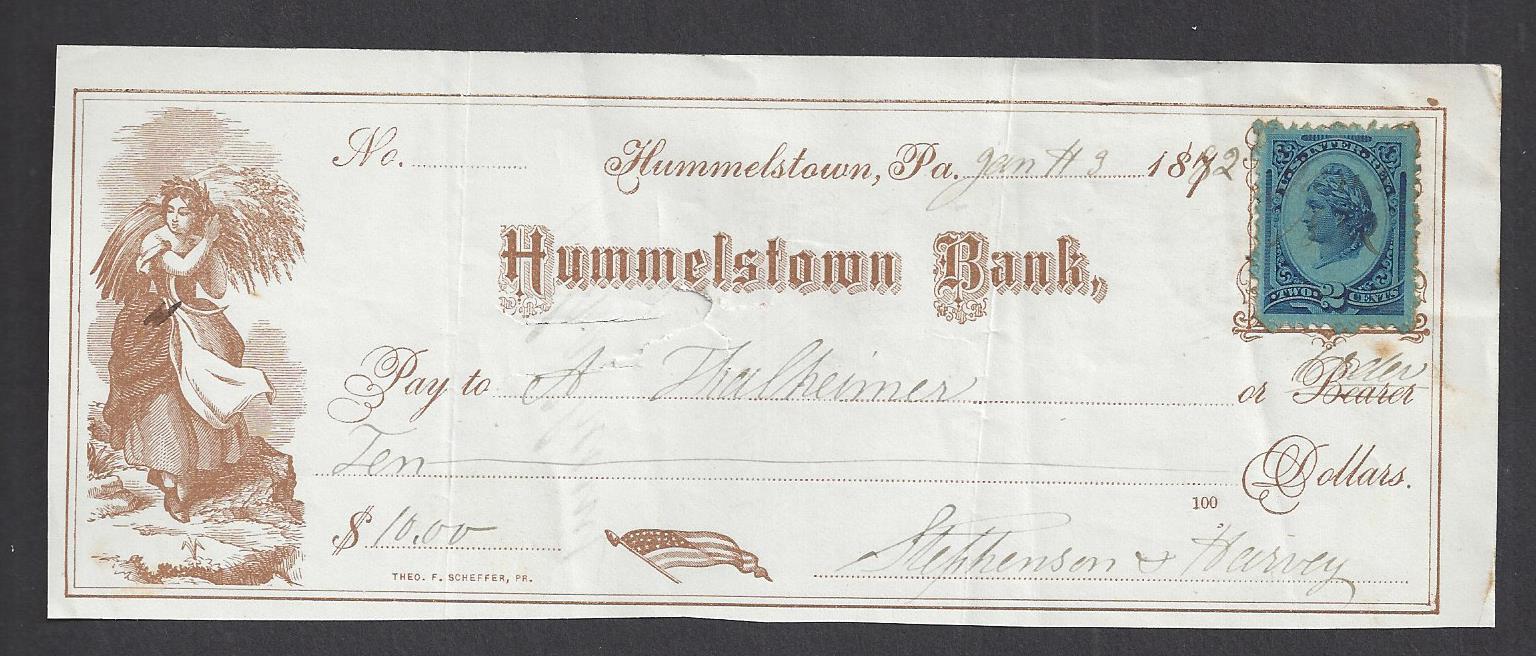 No. Hummelstown, Pa. Jan 3 1882
U.S. INTER. REV.
Hummelstown Bank,
TWO 2 CENTS
Order
Pay to A Thalheimer or Bearer
Ten Dollars.
100
$ 10.00 Stephenson & Harvey
THEO. F. SCHEFFER, PR.